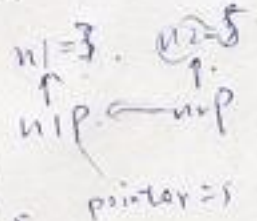 n1=3. n2=5
n1p n2p
pointer=